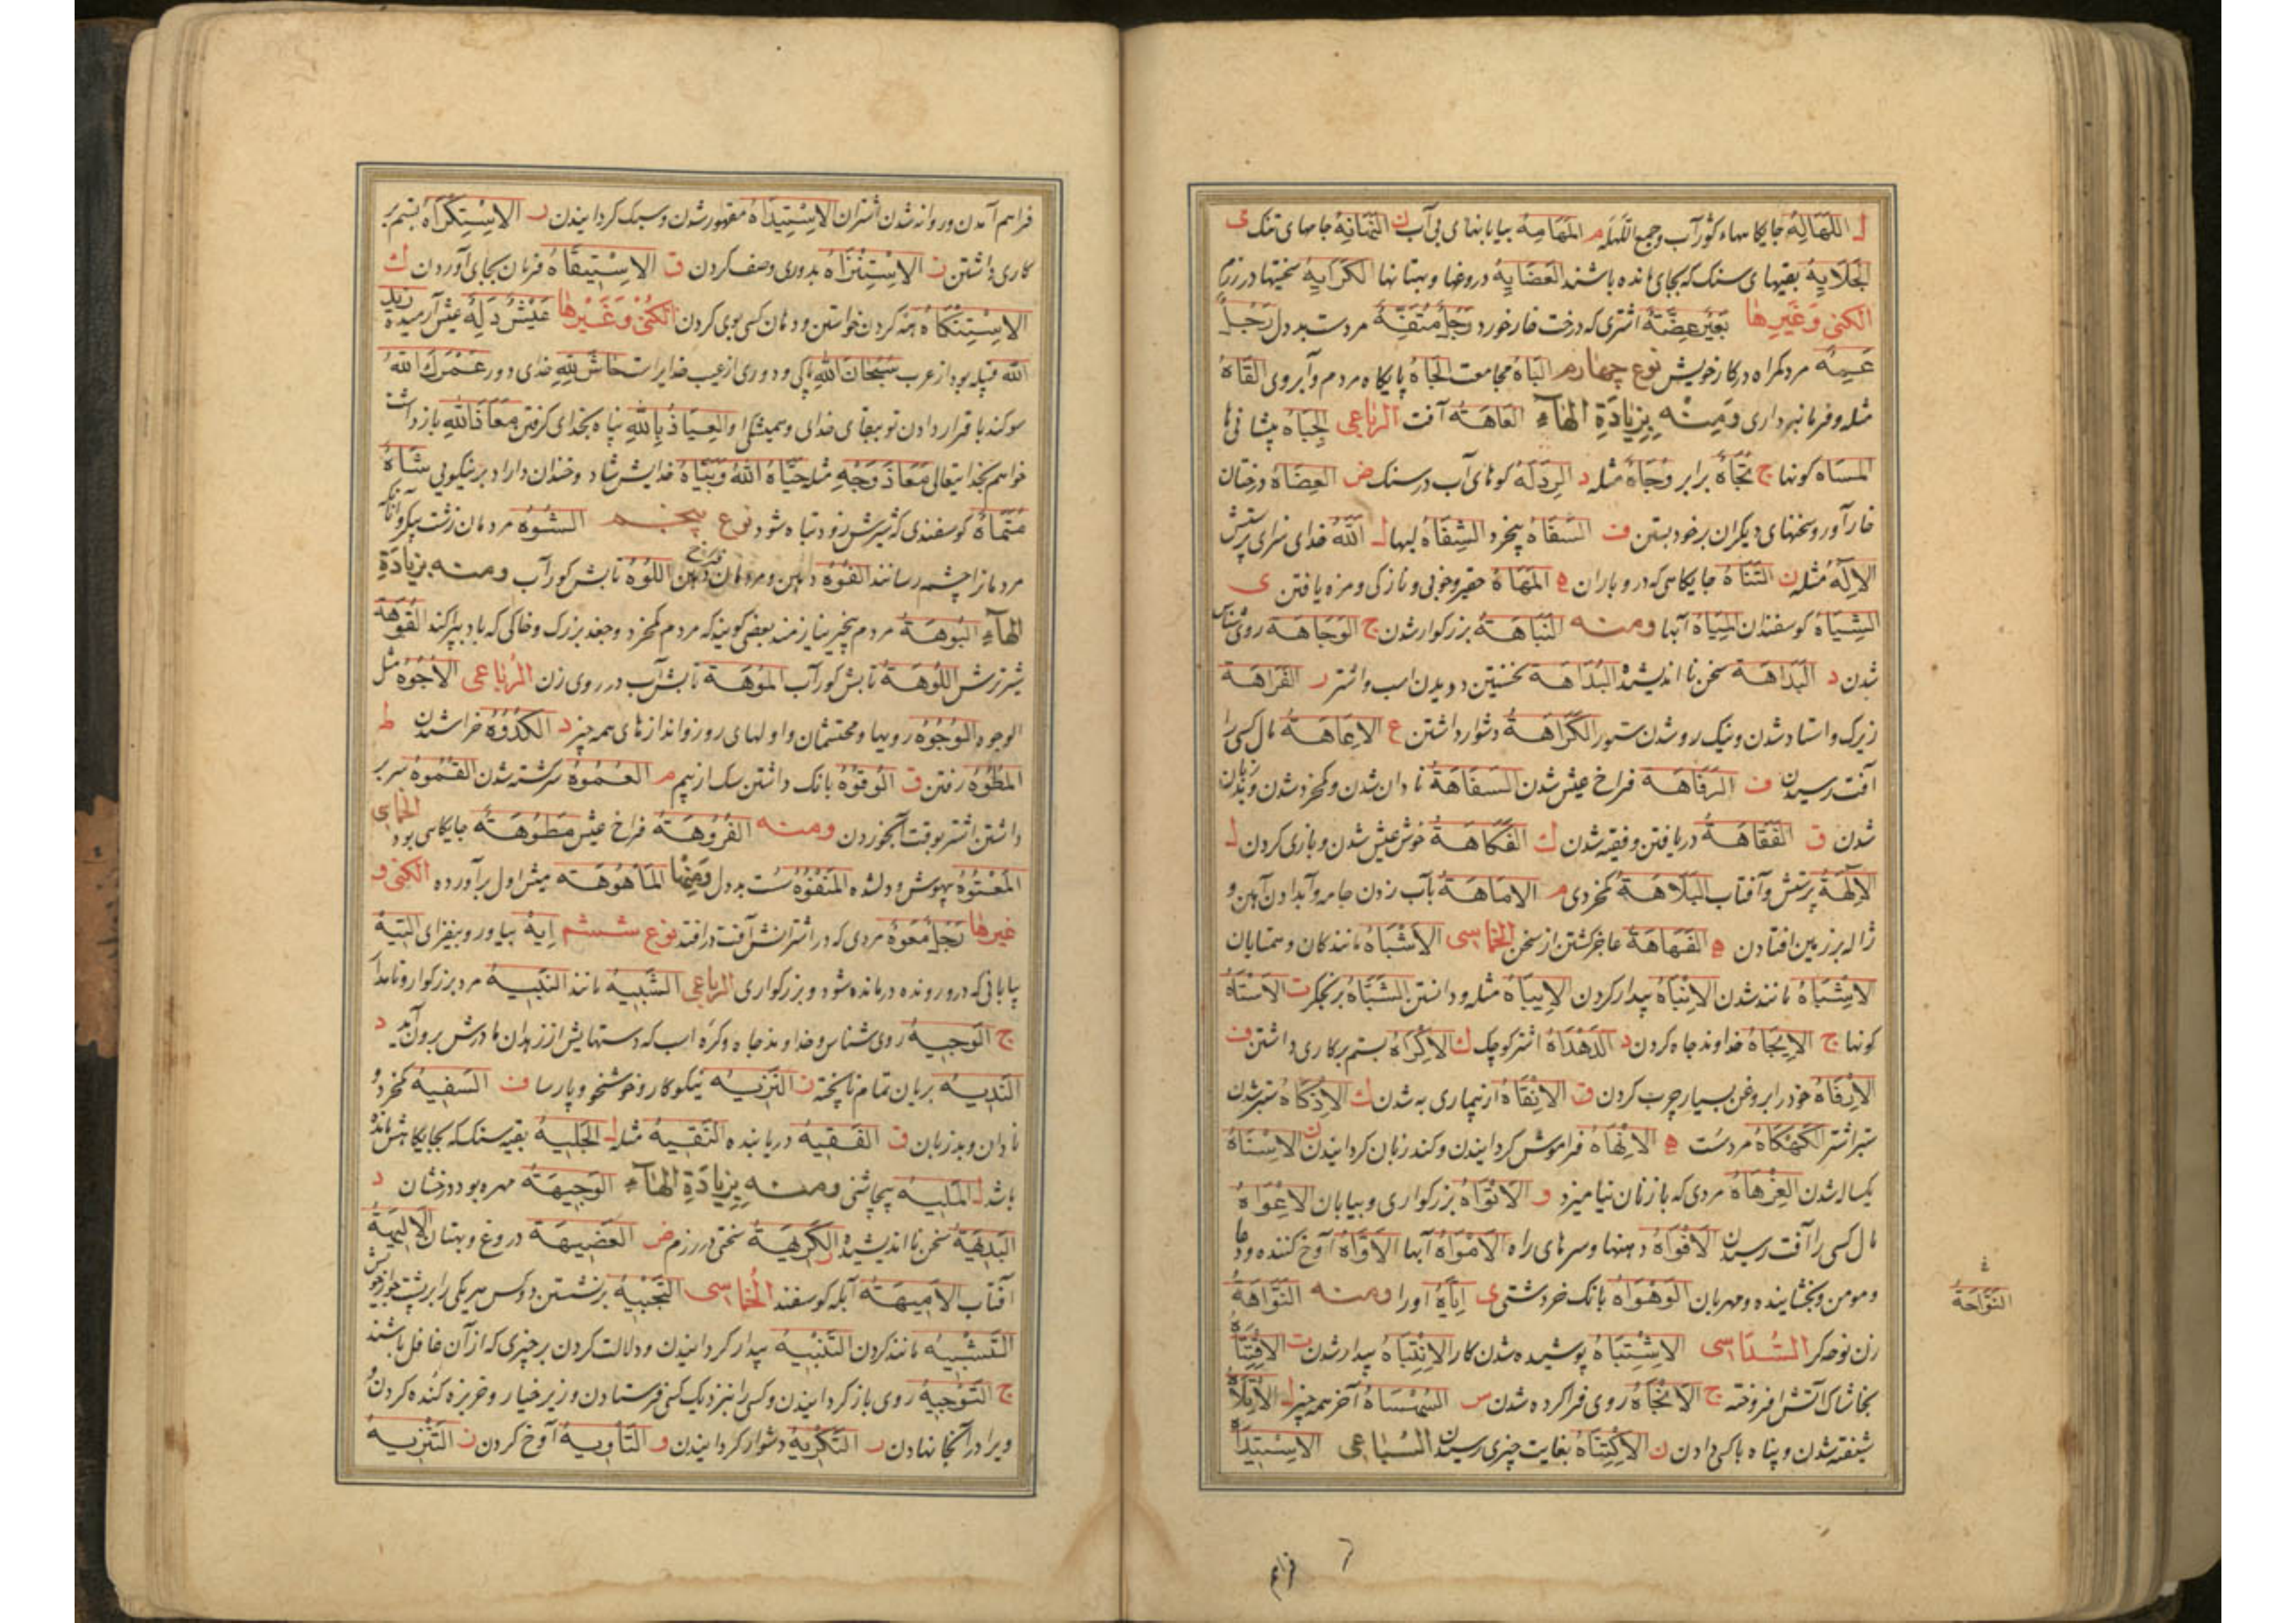 ل اللَّهَالِهُ جایکاهها‌ء کوزآب و جمع اللَّهْلَه م المَهَامِهُ بیابانهای بی آب ن النَّهَانِهُ جامهای تنک ی
الجَلَایِهُ بقیهای سنک که بجای مانده باشند العَضَایِهُ دروغها و بهتانها الکَرَایِهُ سختیها در رزم
الکنی وَغَیرِها بَعِیرٌ عَضِهٌ اشتری که درخت خار خورد رَجُلٌ مُتَفَّهٌ مردست بددل رَجُلٌ
عَمِهٌ مرد کمراه در کار خویش نوع چهارم البَاهُ مجامعت الجَاهُ پایکاه مردم و آبروی القَاهُ
مثله و فرمانبرداری وَمِنْه بِزِیادَةِ الهَاءِ العَاهَةُ آفت الرباعی الجِبَاهُ پیشانی ها
المسَاه کونها ج تُجَاهٌ برابر وُجَاهٌ مثله د الرِدَلَهُ کوهای آب در سنک ض العِضَاهُ درختان
خارآور و سخنهای دیکران بر خود بستن ف السَفَاهُ بیخرد الشِفَاهُ لبها ل اَللّٰهُ خدای سزای پرستش
الاِلٰهُ مثله ن التَنَاهُ جایکاهی که درو باران ه المَهَاهُ حقیر و خوبی و نازکی و مزه یافتن ی
الشِیَاهُ کوسفندان المِیَاهُ آبها ومنه النَبَاهَةُ بزرکوار شدن ج الوَجَاهَة روی شناس
شدن د البَدَاهَة سخن نااندیشیده البُدَاهَة نخستین دویدن اسب و اشتر ر الفَرَاهَة
زیرک و استاد شدن و نیک رو شدن ستور الکَرَاهَةُ دشوار داشتن ع الاِعَاهَةُ مال کسی را
آفت رسیدن ف الرَفَاهَة فراخ عیش شدن السَفَاهَةُ نادان شدن و کمخرد شدن و بدزبان
شدن ق الفَقَاهَةُ دریافتن و فقیه شدن ك الفَکَاهَةُ خوش عیش شدن و بازی کردن ل
الاِلٰهَةُ پرستش و آفتاب البَلَاهَةُ کمخردی م الاِمَاهَةُ بآب زدن جامه و آب دادن آهن و
ژاله بر زمین افتادن ه الفَهَاهَة عاجز کشتن از سخن الخماسی الاَشْبَاهُ مانندکان و همتایان
الاِشْبَاهُ مانند شدن الاِنْبَاهُ بیدار کردن الاِیبَاهُ مثله و دانستن الشَبَّاهُ برنجکر ت الاَسْتَاهُ
کونها ج الاِیجَاهُ خداوند جاه کردن د الدَهْدَاهُ اشتر کوچک ك الاِکْرَاهُ بستم بر کاری داشتن ف
الاِرْفَاهُ خود را بروغن بسیار چرب کردن ق الاِنْقَاهُ از بیماری به شدن ك الاِذْکَاهُ ستبر شدن
ستبر اشتر الکَهْکَاهُ مردست ه الاِنْهَاهُ فراموش کردانیدن و کندزبان کردانیدن ن الاِسْنَاهُ
یکساله شدن العِزْهَاهُ مردی که با زنان نیامیزد و الاَتْوَاهُ بزرکواری و بیابان الاِعْوَاهُ
مال کسی را آفت رسیدن الاَفْوَاهُ دهنها و سرهای راه الاَمْوَاهُ آبها الاَوَّاهُ آوخ کننده و دعا
و مومن و بخشاینده و مهربان الوَهْوَاهُ بانک خر دشتی ی اِیَّاهُ او را ومنه النَوَّاهَةُ
زن نوحه کر السُدَاسی الاِشْتِبَاهُ پوشیده شدن کار الاِنْتِبَاهُ بیدار شدن ت
بخاشاک آتش افروخته ج الاِتِّجَاهُ روی فرا کرده شدن س السُهْسَاهُ آخر همه چیز ل
شیفته شدن و پناه با کسی دادن ن الاِکْتِنَاهُ بغایت چیزی رسیدن السُبَاعی الاِسْتِیدَاهُ
النَوَّاحَةُ
فراهم
فراهم آمدن و روانه شدن اشتران الاِسْتِیدَاهُ مقهور شدن و سبک کردانیدن ر الاِسْتِکْرَاهُ بستم بر
کاری داشتن ز الاِسْتِنْزَاهُ بدوری وصف کردن ق الاِسْتِیقَاهُ فرمان بجای آوردن ك
الاِسْتِنْکَاهُ همه کردن خواستن و دهان کسی بوی کردن الکنی وَغَیْرِها عَیْشٌ دَلِهٌ عیش آرمیده زید
اللّٰه قبیله بود از عرب سُبْحَانَ اللّٰهِ پاکی و دوری از عیب خدایراست حَاشَ لِلّٰهِ خدای دور عَمْرَكَ اللّٰهُ
سوکند باقرار دادن تو ببقای خدای و همیشکی او العِیَاذُ بِاللّٰهِ پناه بخدای کرفتن مَعَاذَ اللّٰهِ بازداشت
خواهم بخدایتعالی مَعَاذَ وَجْهِ مثله حَیَّاهُ اللّٰهُ وَبَیَّاهُ خدایش شاد و خندان داراد بر نیکویی شَاهٌ
کوسفندی که شیرش زود تباه شود نوع پنجم الشُوْهُ مردمان زشت پیکر و آنانکه
مردمانرا چشم رسانند الفُوْهُ دهن و مردمان فراخ دهن اللُوْهُ تابش کورآب ومنه بزیادَةِ
الهاءِ البُوهَةُ مردم بیخیر بعضی کویند که مردم کمخرد و جغد بزرک و خاکی که باد بپراکند القُوهَةُ
شیر ترش اللُوْهَةُ تابش کورآب المُوْهَة تابش آب در روی زن الرُباعی الاُجُوْهُ مثل
الوجوه الوُجُوْهُ رویها و محتشمان و اولهای روز و اندازهای همه چیز د الکُدُوْهُ خراشیدن ط
المُطُوْهُ رفتن ق الوُقُوْهُ بانک داشتن سک از بیم م العُمُوْهُ سرکشته شدن القُمُوْهُ سر بر
داشتن اشتر بوقت آبخوردن ومنه الفُرُوْهَةُ فراخ عیش مَطُوْهَةٌ جایکاهی بود الخماسی
المَعْتُوْهُ بیهوش و دلشده المَنْفُوْهُ سست بددل وَمِنْهَا المَأهُوهَة میش اول برآورده الکنی و
غیرها رَجُلٌ مَعُوْهٌ مردی که در اشترانش آفت درافتد نوع ششم اِیْهِ بیاور و بیفزای التِیْهُ
بیابانی که درو رونده درمانده شود و بزرکواری الرباعی الشَبِیْهُ مانند النَبِیْهُ مرد بزرکوار و نامدار
ج الوَجِیْهُ روی شناس و خداوند جاه و کرّه اسب که دستهایش از زهدان مادرش برون آید د
النَدِیْهُ بریان تمام ناپخته ز النَزِیْهُ نیکوکار و خوشخو و پارسا ف السَفِیْهُ کمخرد و
نادان و بدزبان ق الفَقِیْهُ دریابنده النَقِیْهُ مثله ل الجَلِیْهَةُ بقیه سنک که بجایکاهش مانده
باشد ل المَلِیْهُ بیچاشنی ومنه بِزِیَادَةِ الهَاءِ الوَجِیهَةُ مهره بود درخشان د
البَدِیْهَةُ سخن نااندیشیده ر الکَرِیْهَةُ سختی در رزم ض العَضِیْهَة دروغ و بهتان الاِلٰهِیهَةُ
آفتاب الاَمِیهَةُ آبله کوسفند الخُمَاسی التَجْبِیْهُ برنشستن دو کس هر یکی را بر پشت خر
التَشْبِیْهُ مانند کردن التَنْبِیْهُ بیدار کردانیدن و دلالت کردن بر چیزی که از آن غافل باشند
ج التَوْجِیْهُ روی باز کردانیدن و کسی را نزدیک کسی فرستادن و زیر خیار و خربزه کنده کردن و
ویرا در آنجا نهادن ر التَکْرِیْهُ دشوار کردانیدن و التَأوِیْهُ آوخ کردن ز التَنْزِیْهُ